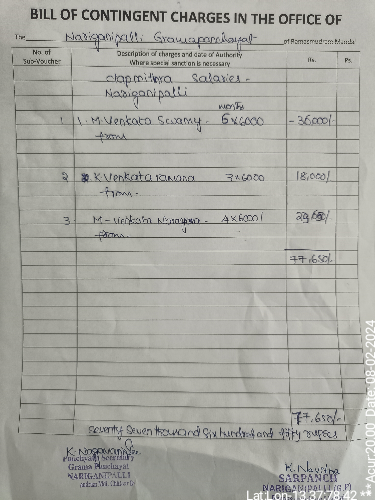 BILL OF CONTINGENT CHARGES IN THE OFFICE OF
The Nariganipalli Gramapanchayat of Ramasmudram Mandal
No. of Sub-Voucher Description of charges and date of Authority Where special sanction is necessary Rs. Ps.
Clapmithra Salaries -
Nariganipalli
months
1 1. M. Venkata Swamy - 6x6000 - 36000/-
from
2 K. Venkata ramana 3x6000 18,000/
from -
3 M - Venkata Narayana - 4x6000/
from
77,650/-
77,650/-
Seventy Seven thousand Six hundred and fifty rupees
Panchayat Secretary
Grama Panchayat
NARIGANIPALLI
K. Navina
SARPANCH
NARIGANIPALLI (G.P)
Lat Lon-13.37,78.42 **
**Acur:20.00 Date-08-02-2024